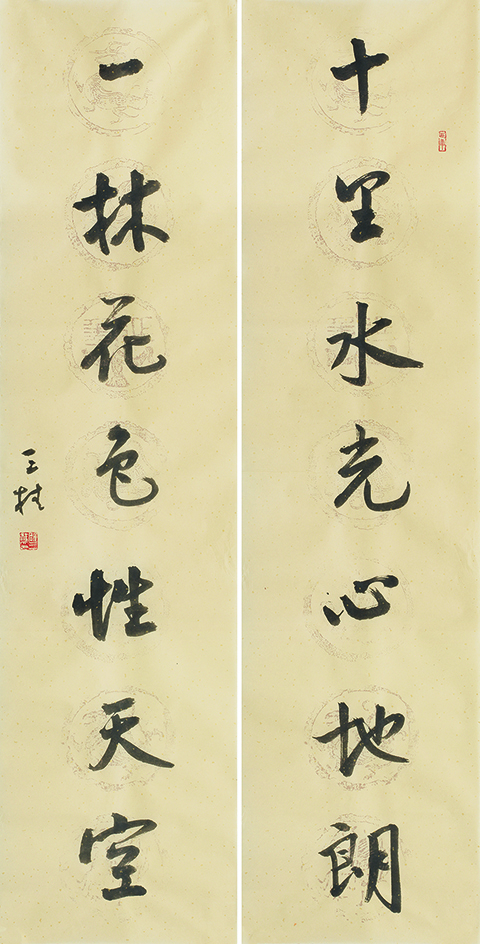 十里水光心地朗
一林花色性天空